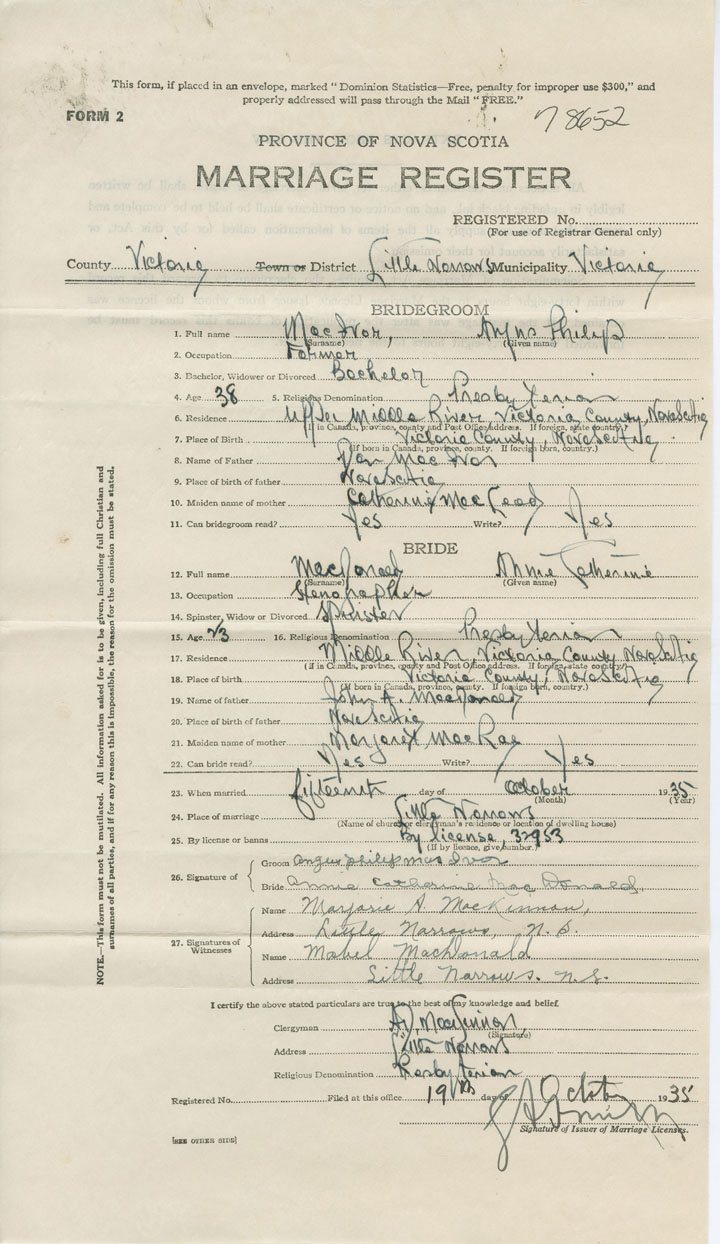 This form, if placed in an envelope, marked "Dominion Statistics—Free, penalty for improper use $300," and
properly addressed will pass through the Mail "FREE."
FORM 2
78652
PROVINCE OF NOVA SCOTIA
MARRIAGE REGISTER
REGISTERED No.
(For use of Registrar General only)
County Victoria Town or District Little Narrows Municipality Victoria
BRIDEGROOM
1. Full name MacIvor, Angus Philip
(Surname) (Given name)
2. Occupation Farmer
3. Bachelor, Widower or Divorced Bachelor
4. Age 38 5. Religious Denomination Presbyterian
6. Residence Upper Middle River, Victoria County, Nova Scotia
(If in Canada, province, county and Post Office address. If foreign, state country)
7. Place of Birth Victoria County, Nova Scotia
(If born in Canada, province, county. If foreign born, country.)
8. Name of Father Dan MacIvor
9. Place of birth of father Nova Scotia
10. Maiden name of mother Catherine MacLeod
11. Can bridegroom read? Yes Write? Yes
BRIDE
12. Full name MacDonald Annie Catherine
(Surname) (Given name)
13. Occupation Stenographer
14. Spinster, Widow or Divorced Spinster
15. Age 23 16. Religious Denomination Presbyterian
17. Residence Middle River, Victoria County Nova Scotia
(If in Canada, province, county and Post Office address. If foreign, state country)
18. Place of birth Victoria County, Nova Scotia
(If born in Canada, province, county. If foreign born, country.)
19. Name of father John A. MacDonald
20. Place of birth of father Nova Scotia
21. Maiden name of mother Margaret MacRae
22. Can bride read? Yes Write? Yes
23. When married fifteenth day of October 1935
(Month) (Year)
24. Place of marriage Little Narrows
(Name of church or clergyman's residence or location of dwelling house)
25. By license or banns By license, 32953
(If by licence, give number.)
26. Signature of
Groom Angus Philip MacIvor
Bride Annie Catherine MacDonald
27. Signatures of Witnesses
Name Marjorie A. MacKinnon,
Address Little Narrows, N.S.
Name Mabel MacDonald
Address Little Narrows. N.S.
I certify the above stated particulars are true to the best of my knowledge and belief.
Clergyman MacKinnon
(Signature)
Address Little Narrows
Religious Denomination Presbyterian
Registered No. Filed at this office 19th day of October 1935
Smith
Signature of Issuer of Marriage Licenses.
[SEE OTHER SIDE]
NOTE.—This form must not be mutilated. All information asked for is to be given, including full Christian and
surnames of all parties, and if for any reason this is impossible, the reason for the omission must be stated.